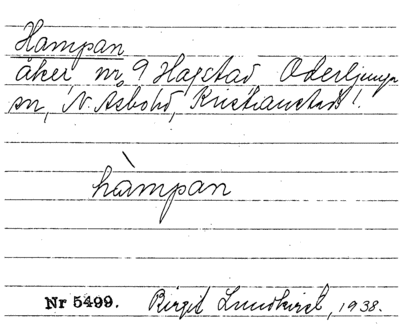 Hampan
åker nr 9 Hagstad Oderljunga
sn, N. Åsbo hd, Kristianstads l.
hàmpan
Nr 5499. Birgit Lundkvist, 1938.